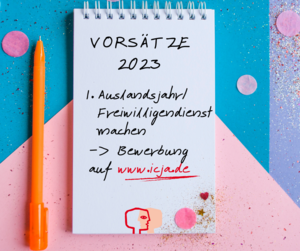 VORSÄTZE
2023
1. Auslandsjahr/
Freiwilligendienst
machen
–> Bewerbung
auf www.icja.de